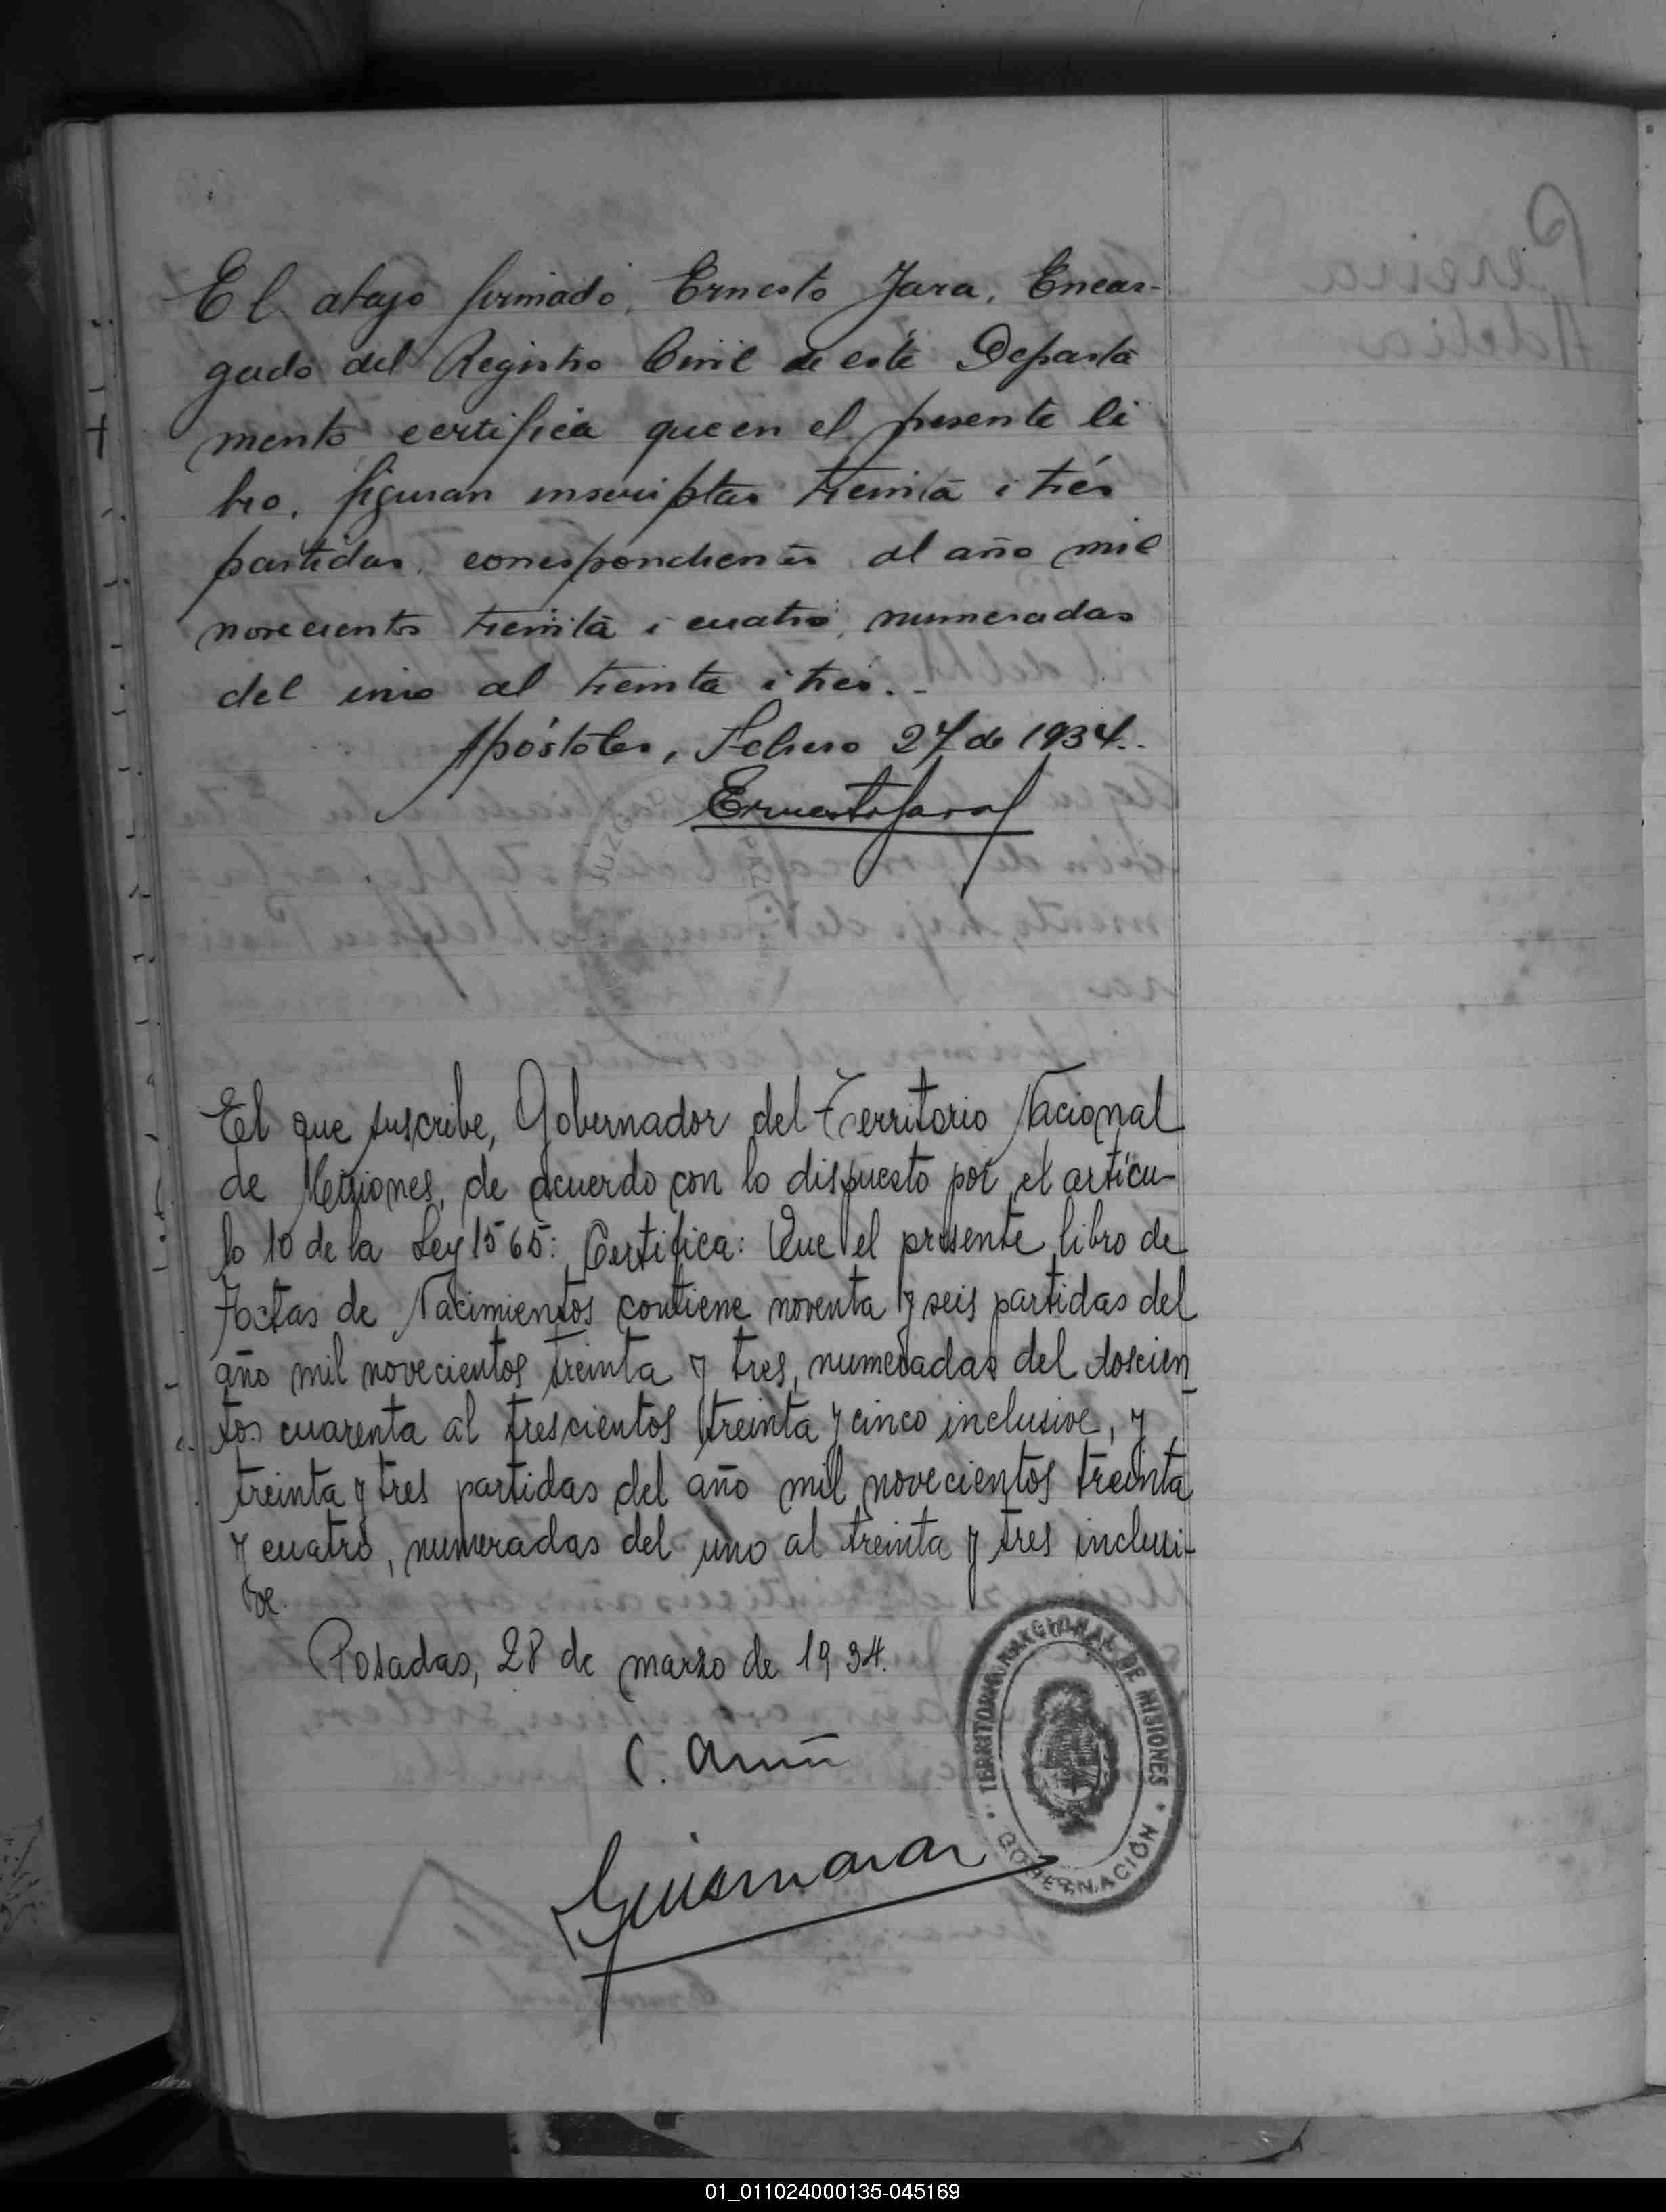 El abajo firmado, Ernesto Jara, Encar-
gado del Registro Civil de este Departa
mento certifica que en el presente li
bro, figuran inscriptas treinta i trés
partidas, correspondientes al año mil
novecientos treinta i cuatro, numeradas
del uno al treinta i tres.-
Apóstoles, Febrero 27 de 1934.-
Ernesto Jara
El que suscribe, Gobernador del Territorio Nacional
de Misiones, de acuerdo con lo dispuesto por el artícu-
lo 10 de la Ley 1565: Certifica: Que el presente libro de
Actas de Nacimientos contiene noventa y seis partidas del
año mil novecientos treinta y tres, numeradas del doscien
tos cuarenta al trescientos treinta y cinco inclusive, y
treinta y tres partidas del año mil novecientos treinta
y cuatro, numeradas del uno al treinta y tres inclusi-
ve.
Posadas, 28 de marzo de 1934.
C.
TERRITORIO NACIONAL DE MISIONES
GOBERNACIÓN
Pereira
Adelia
01_011024000135-045169